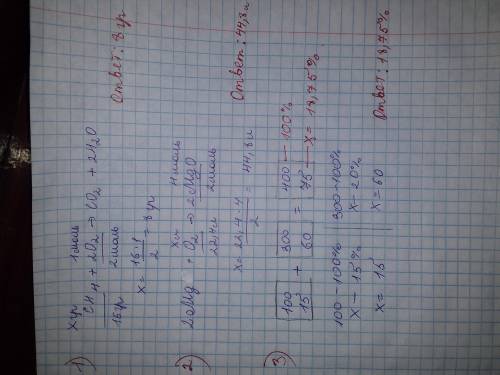 1)
х гр 1 моль
CH4 + 2O2 → CO2 + 2H2O
16 гр 2 моль
x = 16·1 / 2 = 8 гр
Ответ: 8 гр
2)
х л 4 моль
2Mg + O2 → 2MgO
22,4 л 2 моль
x = 22,4·4 / 2 = 44,8 л
Ответ: 44,8 л
3)
100 / 15 + 300 / 60 = 400 — 100%
75 — x = 18,75%
100 – 100% 300 – 100%
x – 15% x – 20%
x = 15 x = 60
Ответ: 18,75%